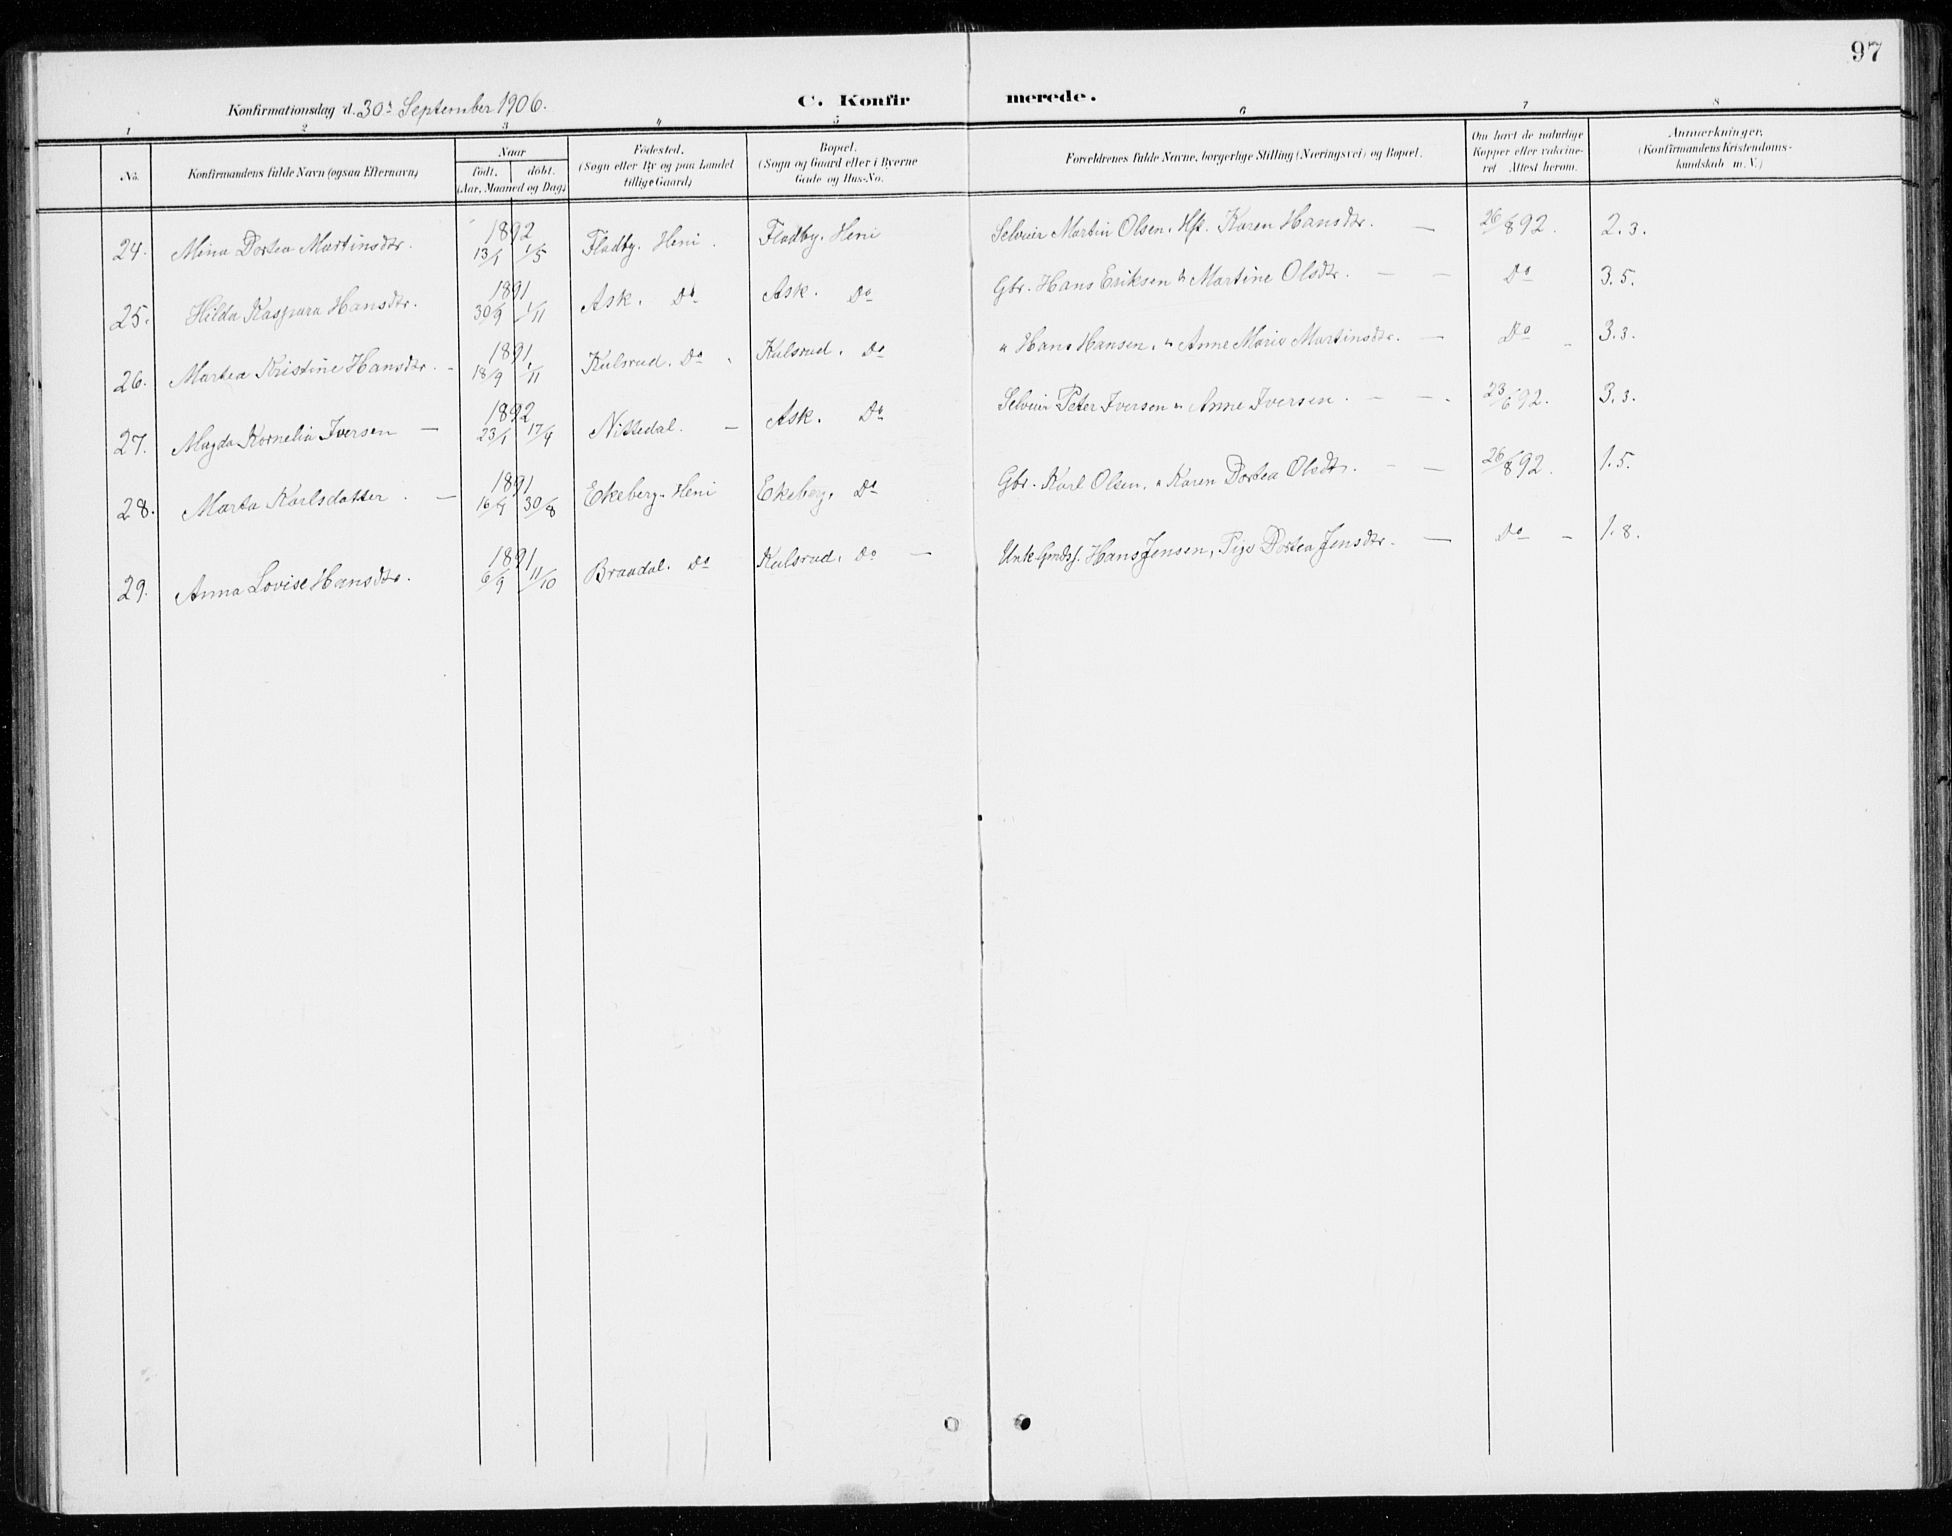 97
Konfirmationsdag d. 30' September 1906.
C. Konfirmerede.
1 2 3 4 5 6 7 8
No. Konfirmandens fulde Navn (ogsaa Efternavn) Naar født. døbt. (Aar, Maaned og Dag) Fødested. (Sogn eller By og paa Landet tillige Gaard) Bopæl. (Sogn og Gaard eller i Byerne Gade og Hus-No. Forældrenes fulde Navne, borgerlige Stilling (Næringsvei) og Bopæl. Om havt de naturlige Kopper eller vakcineret Attest herom. Anmærkninger. (Konfirmandens Kristendomskundskab m. V.)
24. Mina Dortea Martinsdtr. 1892 13/1 1/5 Fladby. Heni. Fladby. Heni Selveier Martin Olsen. Hst. Karen Hansdtr. — 26/8 92. 2.3.
25. Hilda Kaspara Hansdtr. 1891 30/9 1/11 Ask. Do Ask. Do Gbr. Hans Eriksen " Martine Olsdtr. — — Do 3.5.
26. Martea Kristine Hansdtr. - 1891 18/9 1/11 Kulsrud. Do. Kulsrud. Do " Hans Hansen. " Anne Marie Martinsdtr. — Do - 3.3.
27. Magda Kornelia Iversen — 1892 23/1 17/4 Nittedal. — Ask. Do Selveier Peter Iversen " Anne Iversen. — -. 23/6 92. 3.3.
28. Marta Karlsdatter. — 1891 16/7 30/8 Ekeberg. Heni Ekeberg. Do Gbr. Karl Olsen. " Karen Dortea Olsdtr. - — 26/8 92. 1.5.
29. Anna Lovise Hansdtr. 1891 6/9 11/10 Braadal. Do Kulsrud. Do — Unk. Hans Jensen, Pige Dortea Jensdtr. — Do - 1.8.